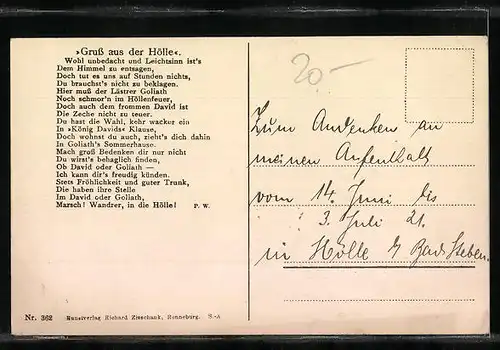 »Gruß aus der Hölle«.
Wohl unbedacht und Leichtsinn ist's
Dem Himmel zu entsagen,
Doch tut es uns auf Stunden nichts,
Du brauchst's nicht zu beklagen.
Hier muß der Lästrer Goliath
Noch schmor'n im Höllenfeuer,
Doch auch dem frommen David ist
Die Zeche nicht zu teuer.
Du hast die Wahl, kehr wacker ein
In »König Davids« Klause,
Doch wohnst du auch, zieht's dich dahin
In Goliath's Sommerhause.
Mach groß Bedenken dir nur nicht
Du wirst's behaglich finden,
Ob David oder Goliath —
Ich kann dir's freudig künden.
Stets Fröhlichkeit und guter Trunk,
Die haben ihre Stelle
Im David oder Goliath,
Marsch! Wandrer, in die Hölle! P. W.
Nr. 362 Kunstverlag Richard Zieschank, Ronneburg. S.-A
20.-
Zum Andenken an
meinen Aufenthalt
vom 14. Juni bis
" " 3. Juli 21.
in Hölle b/ Bad Steben.